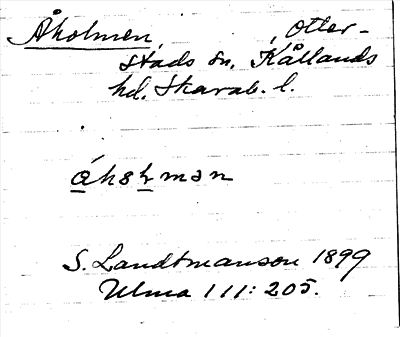 Åholmen, Otter-
stads sn, Kållands
hd. Skarab. l.
S. Landtmanson 1899
Ulma 111: 205.